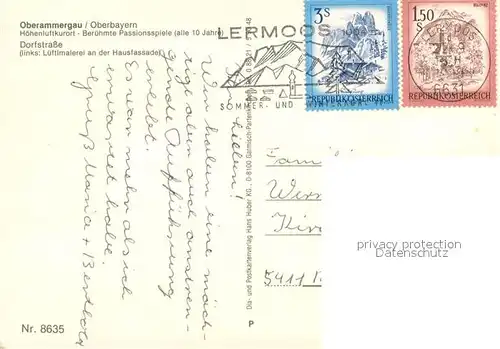 Oberammergau / Oberbayern
Höhenluftkurort - Berühmte Passionsspiele (alle 10 Jahre)
Dorfstraße
(links: Lüftlmalerei an der Hausfassade)
LERMOOS
SOMMER- UND
3S
REPUBLIK ÖSTERREICH
1.50S
REPUBLIK ÖSTERREICH
LERMOOS
6631
Lieben!
Wir haben eine
aber auch anstren-
gende Aufführung
erlebt.
Es war mehr als ich
erwartet habe.
Gruß Maria +
Dia- und Postkartenverlag Hans Huber KG, D-8100 Garmisch-Partenkirchen
P
Fam
Wern
Kir
5411
privacy protection
watermark
Nr. 8635